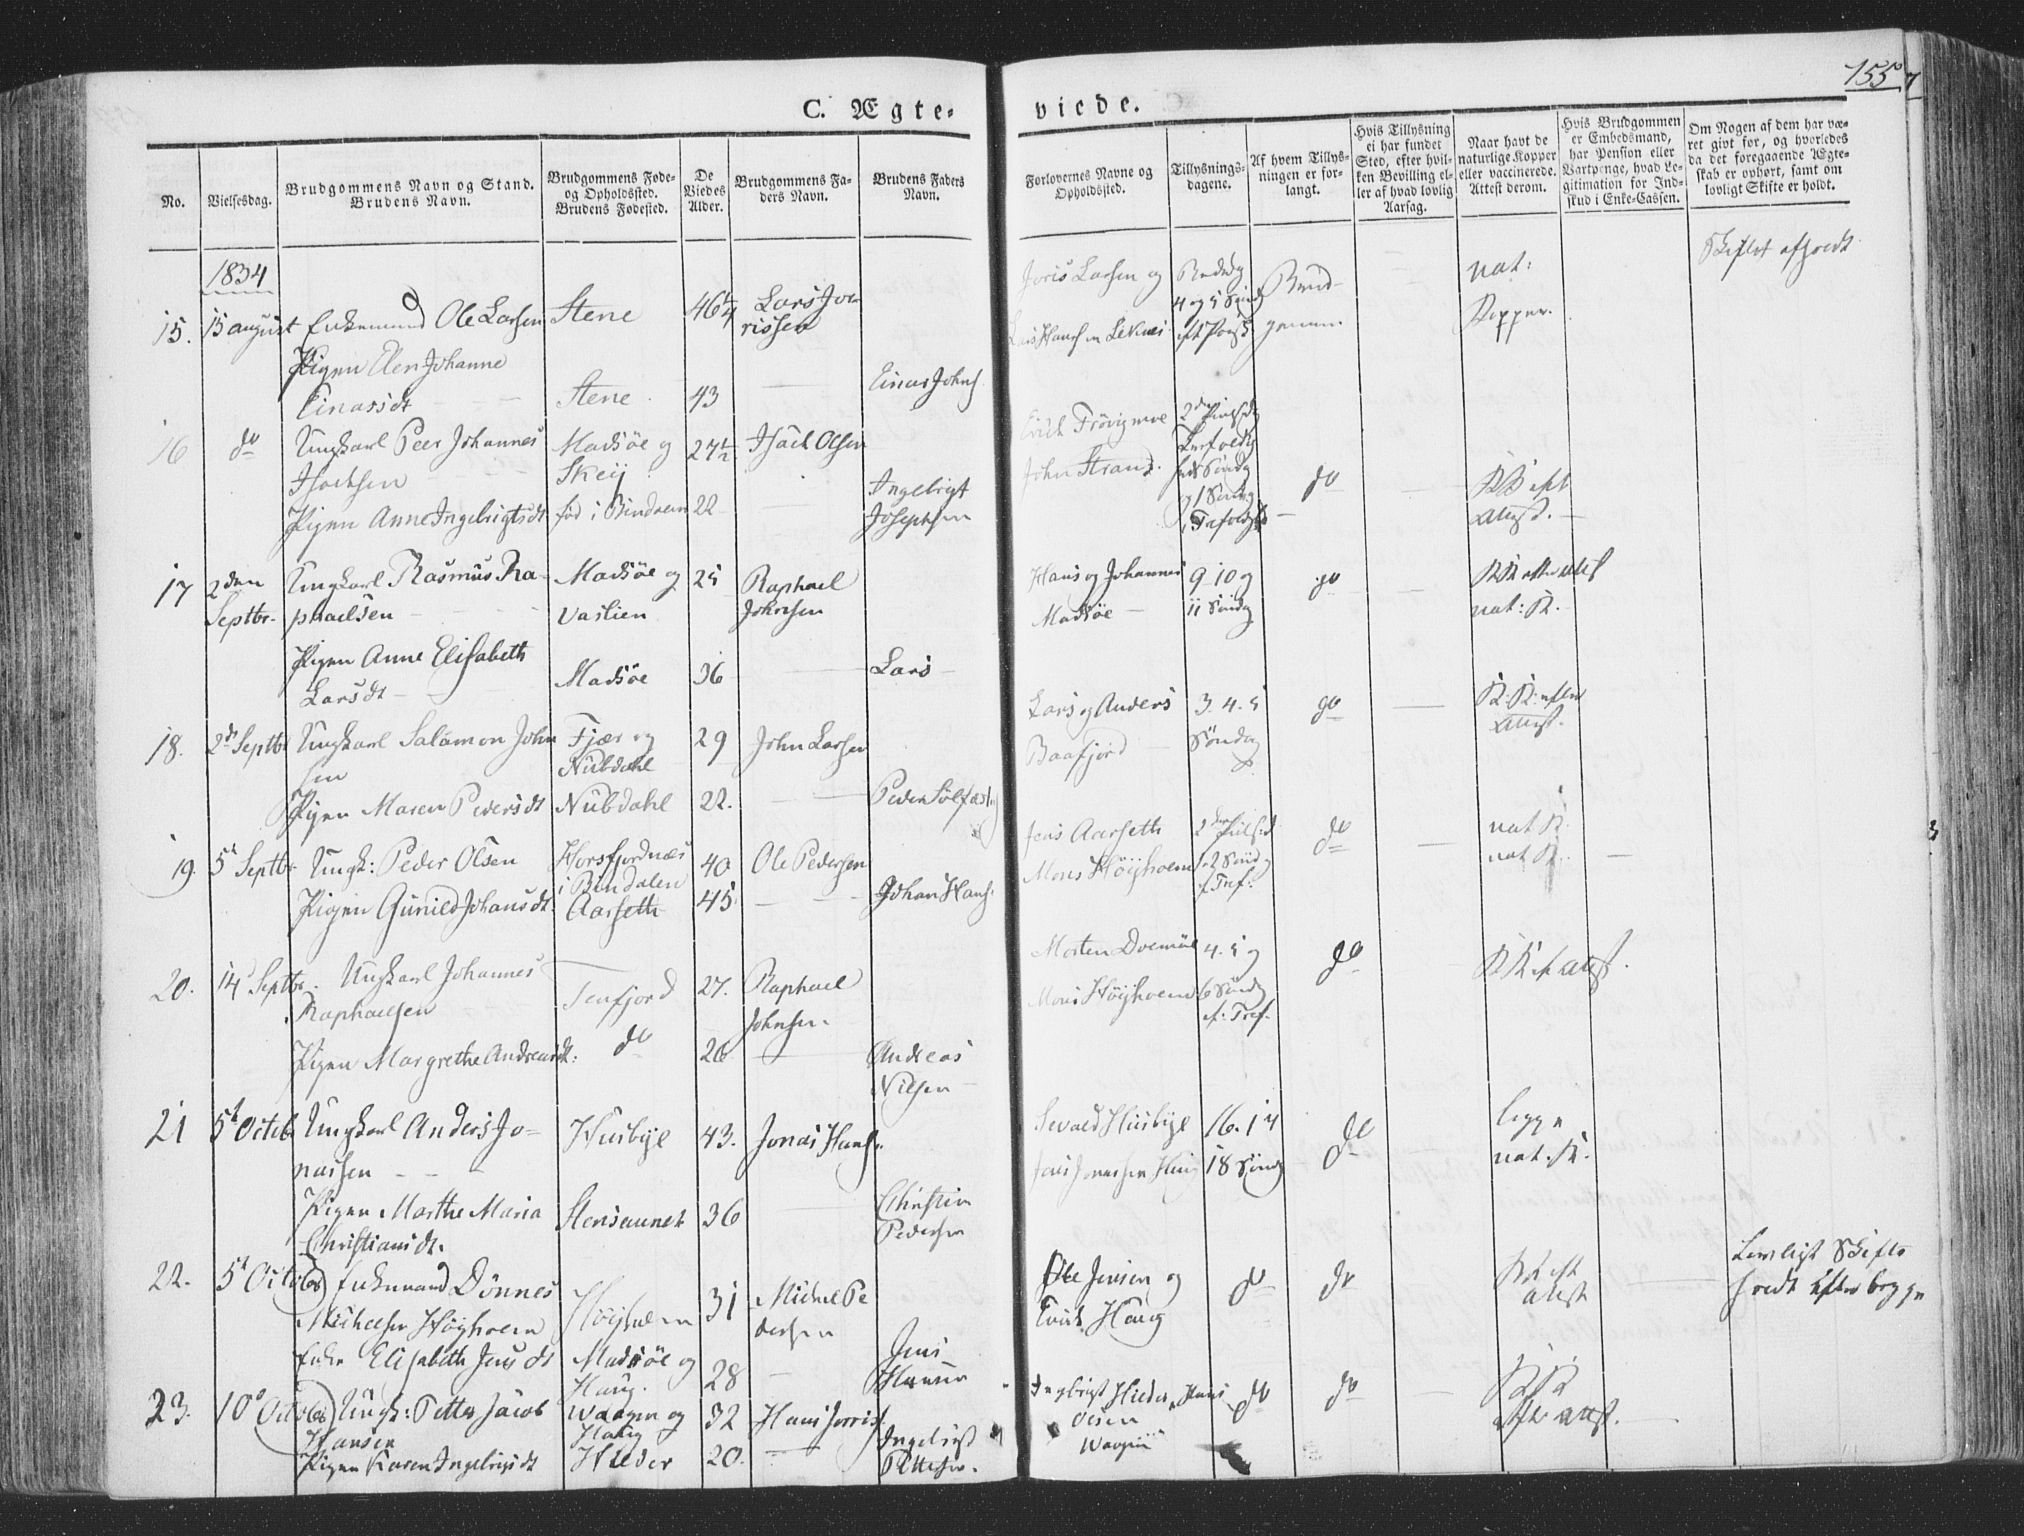 155
C. Ægte-
viede.
No.
Vielsesdag.
Brudgommens Navn og Stand.
Brudens Navn.
Brudgommens Føde-
og Opholdssted.
Brudens Fødested.
De
Viedes
Alder.
Brudgommens Fa-
ders Navn.
Brudens Faders
Navn.
Forlovernes Navne og
Opholdssted.
Tillysnings-
dagene.
Af hvem Tillys-
ningen er for-
langt.
Hvis Tillysning
ei har fundet
Sted, efter hvil-
ken Bevilling el-
ler af hvad lovlig
Aarsag.
Naar havt de
naturlige Kopper
eller vaccinerede.
Attest derom.
Hvis Brudgommen
er Embedsmand,
har Pension eller
Vartpenge, hvad Le-
gitimation for Ind-
skud i Enke-Cassen.
Om Nogen af dem har væ-
ret givt før, og hvorledes
da det foregaaende Ægte-
skab er ophørt, samt om
lovligt Skifte er holdt.
1834
15.
15 august
Enkemand Ole Larsen
Stene
46 1/4
Lars Jor-
rissen
Joris Larsen og
4 og 5 Sønd
Brud-
gommen.
nat:
Kopper.
Skiftet
Pigen Elen Johanne
Einarsdt
Stene
43
Einar Johns
16
do
Ungkarl Peer Johannes
Isacksen
Madsöe og
Skeij
27 1/2
Isack Olsen
John Strand.
do
Attest.
Pigen Anne Ingebrigtsdt
fød i Bindalen
22
Ingebrigt
Josephsen
17
2den
Septbr.
Ungkarl Rasmus Ra-
phaelsen
Madsöe og
Vaslien
25
Raphael
Johnsen
Hans og Johannes
Madsöe
9-10 og
11 Sönd
do
nat: K.
Pigen Anne Elisabeth
Larsdt
Madsöe
36
Lars
18.
2d Septbr
Ungkarl Salamon John
sen
Fjær og
Nubdahl
29
John Larsen
Lars og Anders
Baafjord
3. 4. 5
Söndag
do
K. K. efter
Attest.
Pigen Maren Pedersdt
Nubdahl
22.
Peder
19.
5t Septbr
Ungk: Peder Olsen
Horsfjordnæs
i Bindalen
40
Ole Pedersen
Jens Aarseth
Mons Höijholm
do
nat K.
nat K.
Pigen Gunild Johansdt
Aarseth
45
Johan Hans.
20.
14 Septbr.
Ungkarl Johannes
Raphaelsen
Terfjord
27.
Raphael
Johnsen.
Morten
Mons Höijholm
4. 5 og
6 Sönd
e. Tref.
do
K K eft attest.
Pigen Margrethe Andreasdt:
do
26
Andreas
Nilsen
21
5t Octob.
Ungkarl Anders Jo-
nassen
Husbye
43.
Jonas Hans.
Sevald Husbye
Jens Jonassen Haug
16. 17
18 Sönd
do
begge
nat. K.
Pigen Marthe Maria
Christiansdt.
Stensaunet
36
Christian
Pedersen
22.
5t Octob
Enkemand Dönnes
Michelsen Höijholm
Höijholm
31
Michel Pe
dersen
Ole Jensen og
Erich Haug
do
do
K K eft
attest
Lovligt Skifte
holdt efter begge
Enke Elisabeth Jensdt
Madsöe og
Haug.
28
Jens
Hansen
23.
10d Octob
Ungk: Petter Jacob
Hansen
Waagen og
Haug
32
Hans Jorris.
Ingebrigt Hilder, Hans
Olsen
Waagen
do
do
K K
efter attest.
Pigen Karen Ingebrigtsdt
Hilder
20.
Ingebrigt
Pettersen.